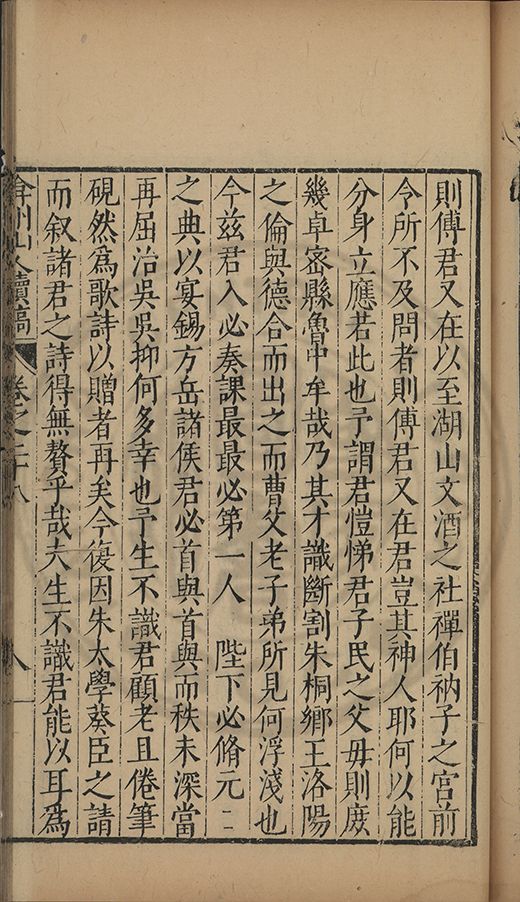 則傅君又在以至湖山文酒之社禪伯衲子之宮前
令所不及問者則傅君又在君豈其神人耶何以能
分身立應若此也予謂君愷悌君子民之父毋則庻
幾卓宻縣魯中牟哉乃其才識斷割朱桐鄉王洛陽
之倫與德合而出之而曹父老子弟所見何浮淺也
今茲君入必奏課最最必第一人　陛下必脩元二
之典以宴錫方岳諸侯君必首與首與而秩未深當
再屈治吳吳抑何多幸也予生不識君顧老且倦筆
硯然爲歌詩以贈者再矣今復因朱太學葵臣之請
而叙諸君之詩得無贅乎哉夫生不識君能以耳爲
弇州山人續稿　卷之二十八　八